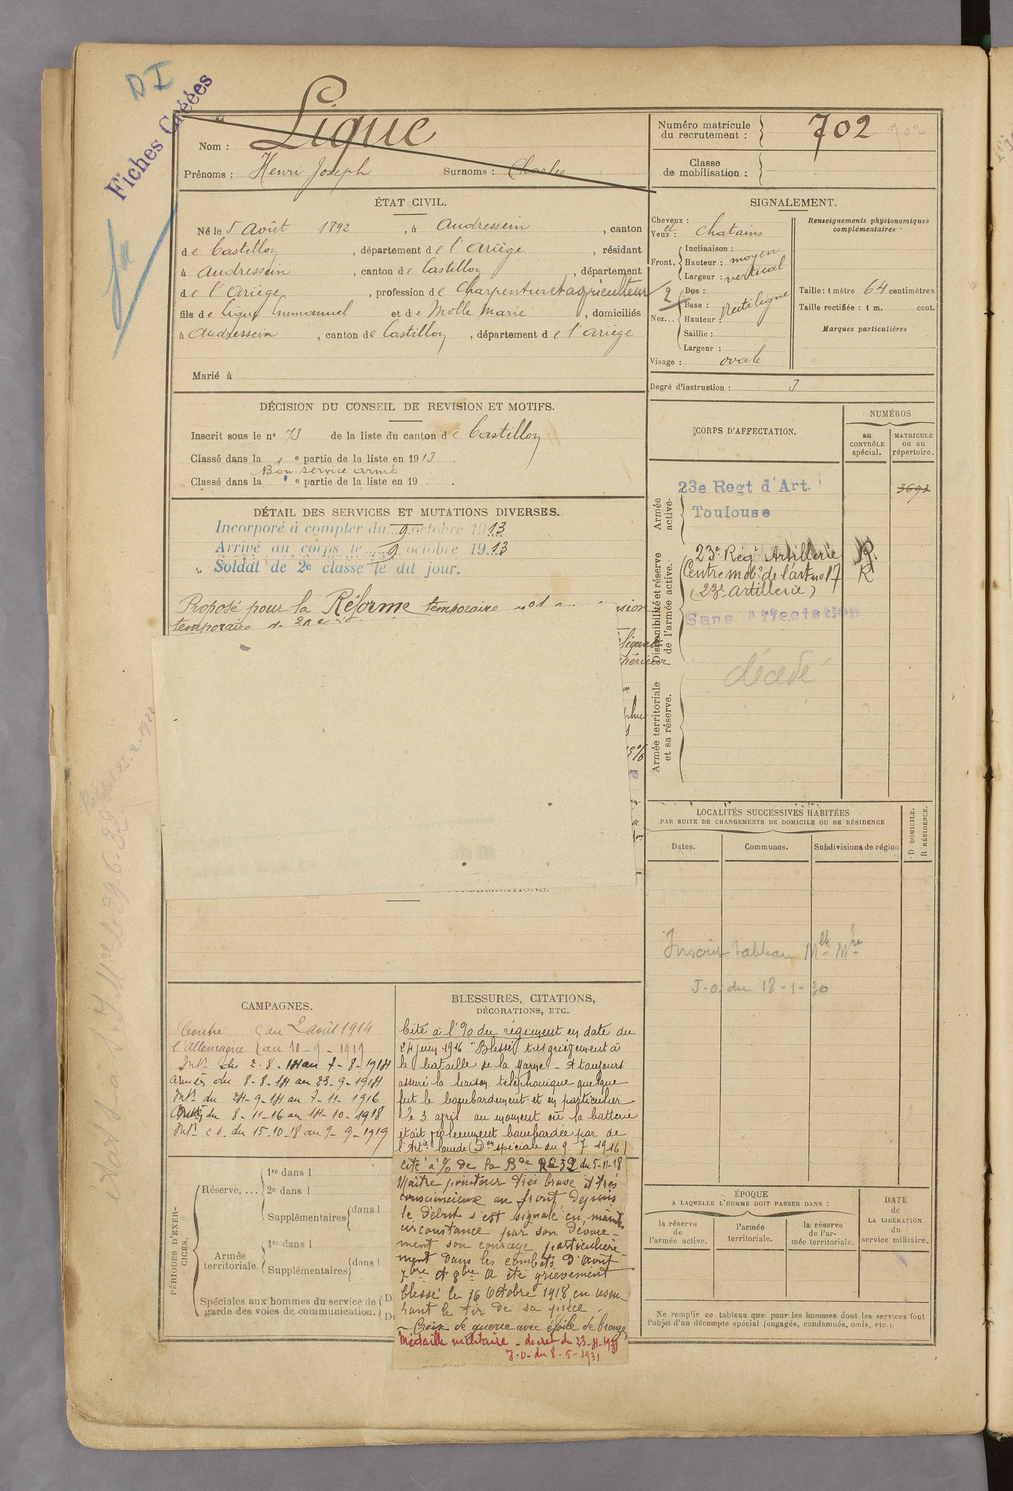 D I
Fiches Créées
Nom : Ligue
Prénoms : Henri Joseph Surnoms : Charles
Numéro matricule du recrutement : 702
Classe de mobilisation :
ÉTAT CIVIL.
Né le 5 Août 1892, à Audressein, canton
de Castillon, département de l'Ariège, résidant
à Audressein, canton de Castillon, département
de l'Ariège, profession de Charpentier et agriculteur
fils de Ligue Emmanuel et de Molle Marie, domiciliés
à Audressein, canton de Castillon, département de l'Ariège
Marié à
SIGNALEMENT.
Cheveux :
Yeux : et chatains
Front.
Inclinaison :
Hauteur : moyen
Largeur : vertical
Nez...
Dos :
Base : Rectiligne
Hauteur :
Saillie :
Largeur :
Visage : ovale
Renseignements physionomiques complémentaires
Taille : 1 mètre 64 centimètres
Taille rectifiée : 1 m. cent.
Marques particulières
Degré d'instruction : 3
DÉCISION DU CONSEIL DE REVISION ET MOTIFS.
Inscrit sous le n° 73 de la liste du canton de Castillon
Classé dans la 1e partie de la liste en 1913
Bon service armé
Classé dans la e partie de la liste en 19
DÉTAIL DES SERVICES ET MUTATIONS DIVERSES.
Incorporé à compter du 9 octobre 1913
Arrivé au corps le 9 octobre 1913
Soldat de 2e classe le dit jour.
Proposé pour la Réforme temporaire
temporaire de
CORPS D'AFFECTATION.
NUMÉROS
au CONTRÔLE spécial.
MATRICULE ou au répertoire.
Armée active.
23e Regt d'Art.
Toulouse
3693
Disponibilité et réserve de l'armée active.
23e Régt Artillerie R
Centre mobre de l'art no 17 R
(23e Artillerie)
Sans Affectation
Armée territoriale et sa réserve.
décédé
LOCALITÉS SUCCESSIVES HABITÉES
PAR SUITE DE CHANGEMENTS DE DOMICILE OU DE RÉSIDENCE
Dates.
Communes.
Subdivisions de région
D DOMICILE.
R RÉSIDENCE.
Inscrit tableau Mlle Mre
J.O. du 18-1-30
CAMPAGNES.
Contre du 2 août 1914
l'Allemagne au 10-9-1919
Int. du 2-8-14 au 7-8-1914
Armées du 8-8-14 au 23-9-1914
Int. du 24-9-14 au 7-11-1916
Armées du 8-11-16 au 14-10-1918
Int. c.d. du 15-10-18 au 9-9-1919
BLESSURES, CITATIONS, DÉCORATIONS, ETC.
Cité à l'O du régiment en date du
24 juin 1916 "Blessé très grièvement à
la bataille de la Marne - A toujours
assuré la liaison téléphonique quelque
fut le bombardement et en particulier
le 3 avril au moment où la batterie
était violemment bombardée par de
l'Artie lourde (Don spéciale du 9-7-1916)
Cité à l'O de la Bde 232 du 5-11-18
Maître pointeur très brave et très
consciencieux au front depuis
le début s'est signalé en mainte
circonstance par son dévoue-
ment son courage particulière-
ment dans les combats d'Août
7bre et 8bre A été grièvement
blessé le 16 Octobre 1918 en assu-
rant le tir de sa pièce.
Croix de guerre avec étoile de bronze
Médaille militaire - décret du 23-4-1931
J-O- du 8-5-1931
PÉRIODES D'EXERCICES.
Réserve....
1re dans l
2e dans l
Supplémentaires dans l
Armée territoriale.
1re dans l
Supplémentaires dans l
Spéciales aux hommes du service de garde des voies de communication.
ÉPOQUE
A LAQUELLE L'HOMME DOIT PASSER DANS :
la réserve de l'armée active.
l'armée territoriale.
la réserve de l'armée territoriale.
DATE de LA LIBÉRATION du service militaire.
Ne remplir ce tableau que pour les hommes dont les services font
l'objet d'un décompte spécial (engagés, condamnés, omis, etc.).